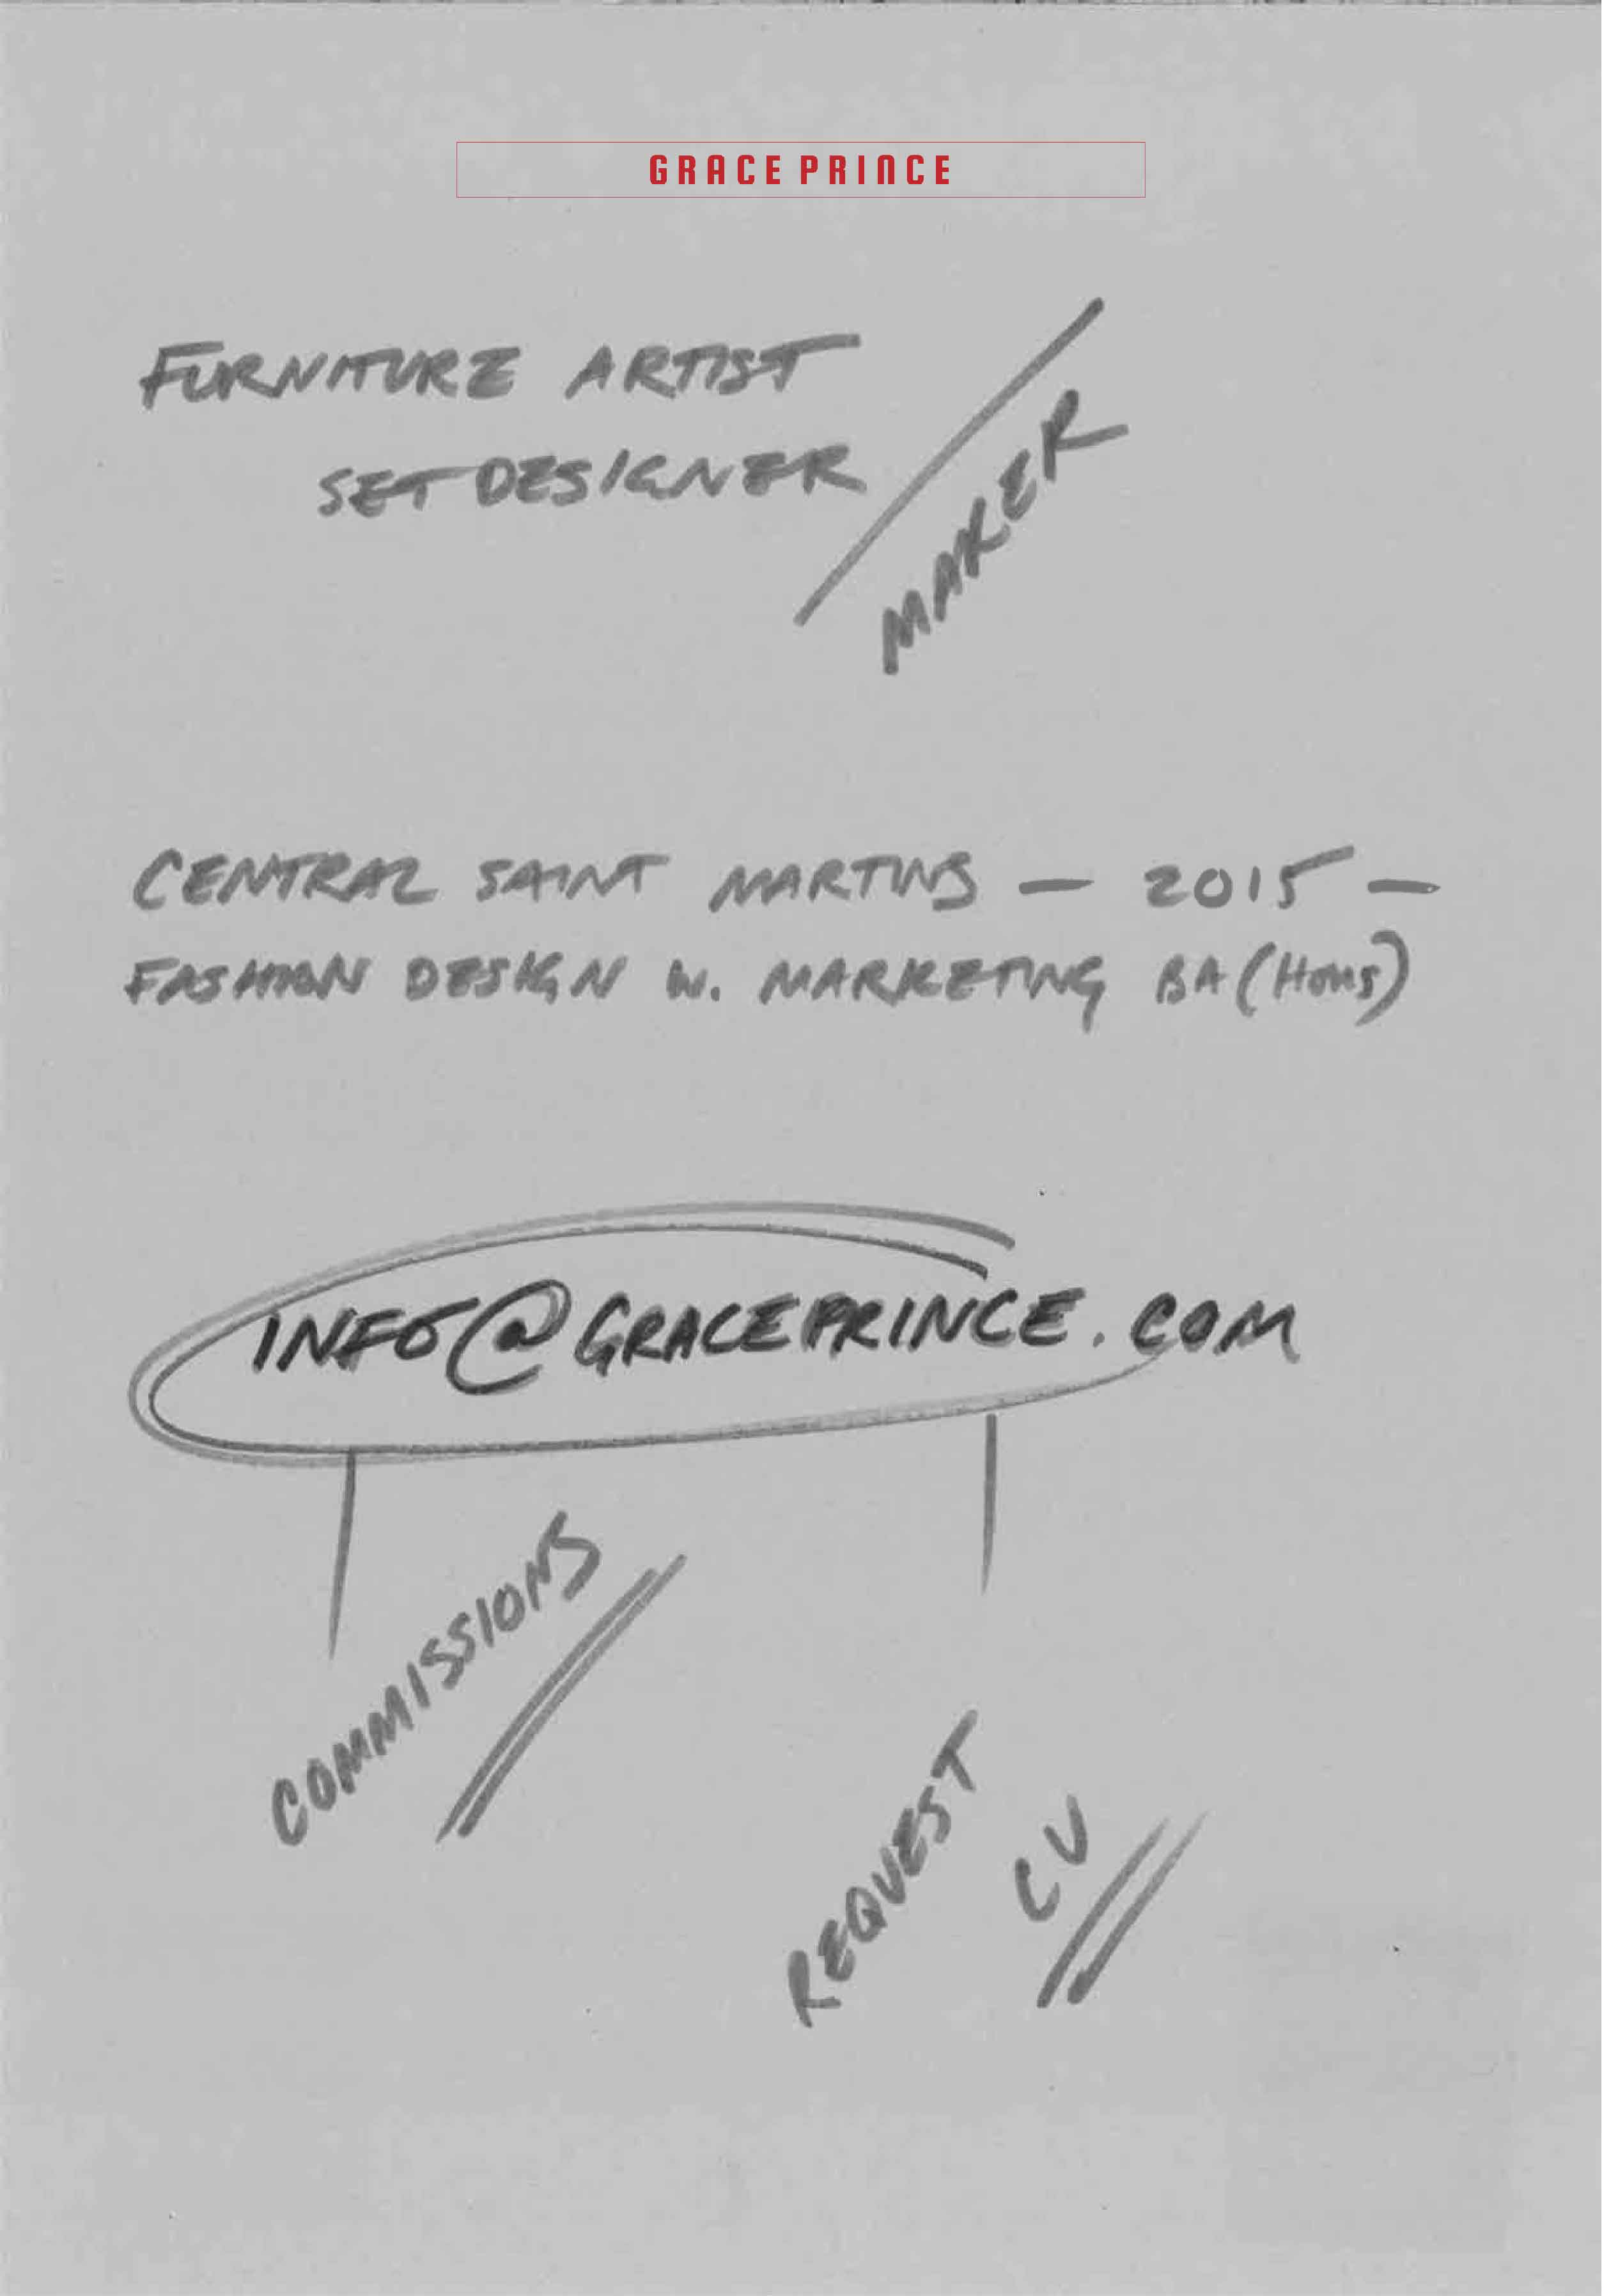 GRACE PRINCE
FURNITURE ARTIST
SET DESIGNER
MAKER
CENTRAL SAINT MARTINS — 2015 —
FASHION DESIGN W. MARKETING BA (Hons)
INFO@GRACEPRINCE.COM
COMMISSIONS
REQUEST
CV